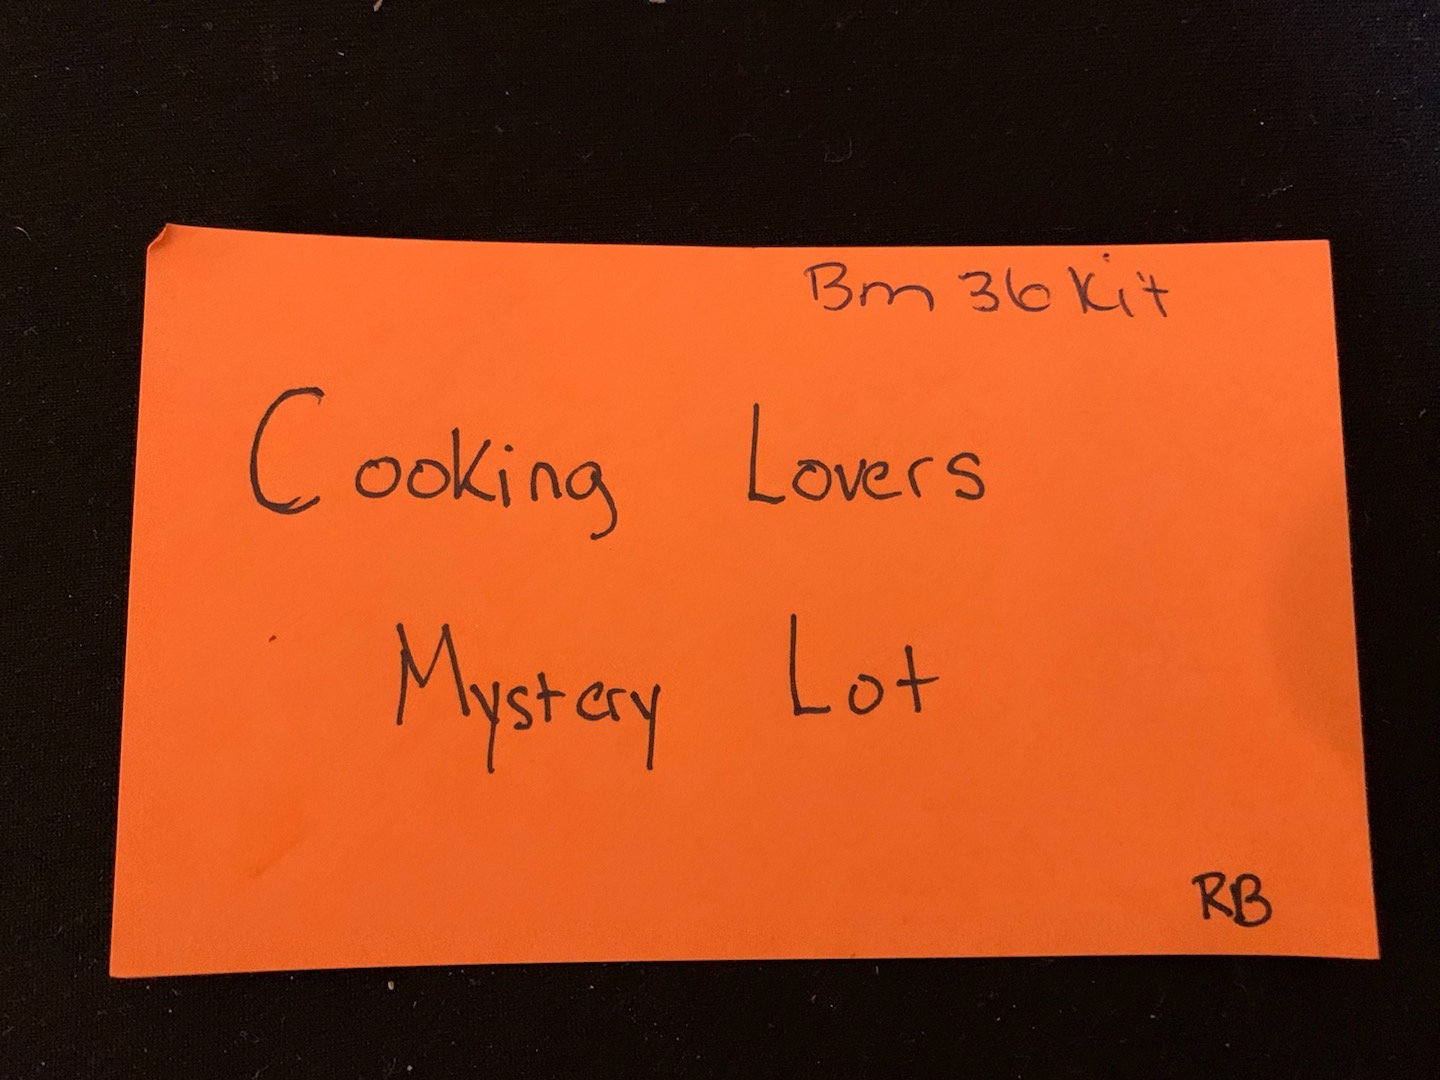 Bm 36 Kit
Cooking Lovers
Mystery Lot
RB